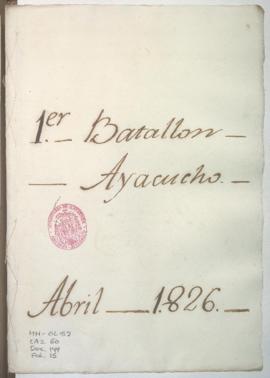 1.er — Batallon —
— Ayacucho. —
Abril — 1.826. —
MH-OL 152
CAJ. 60
Doc. 144
Fol. 15